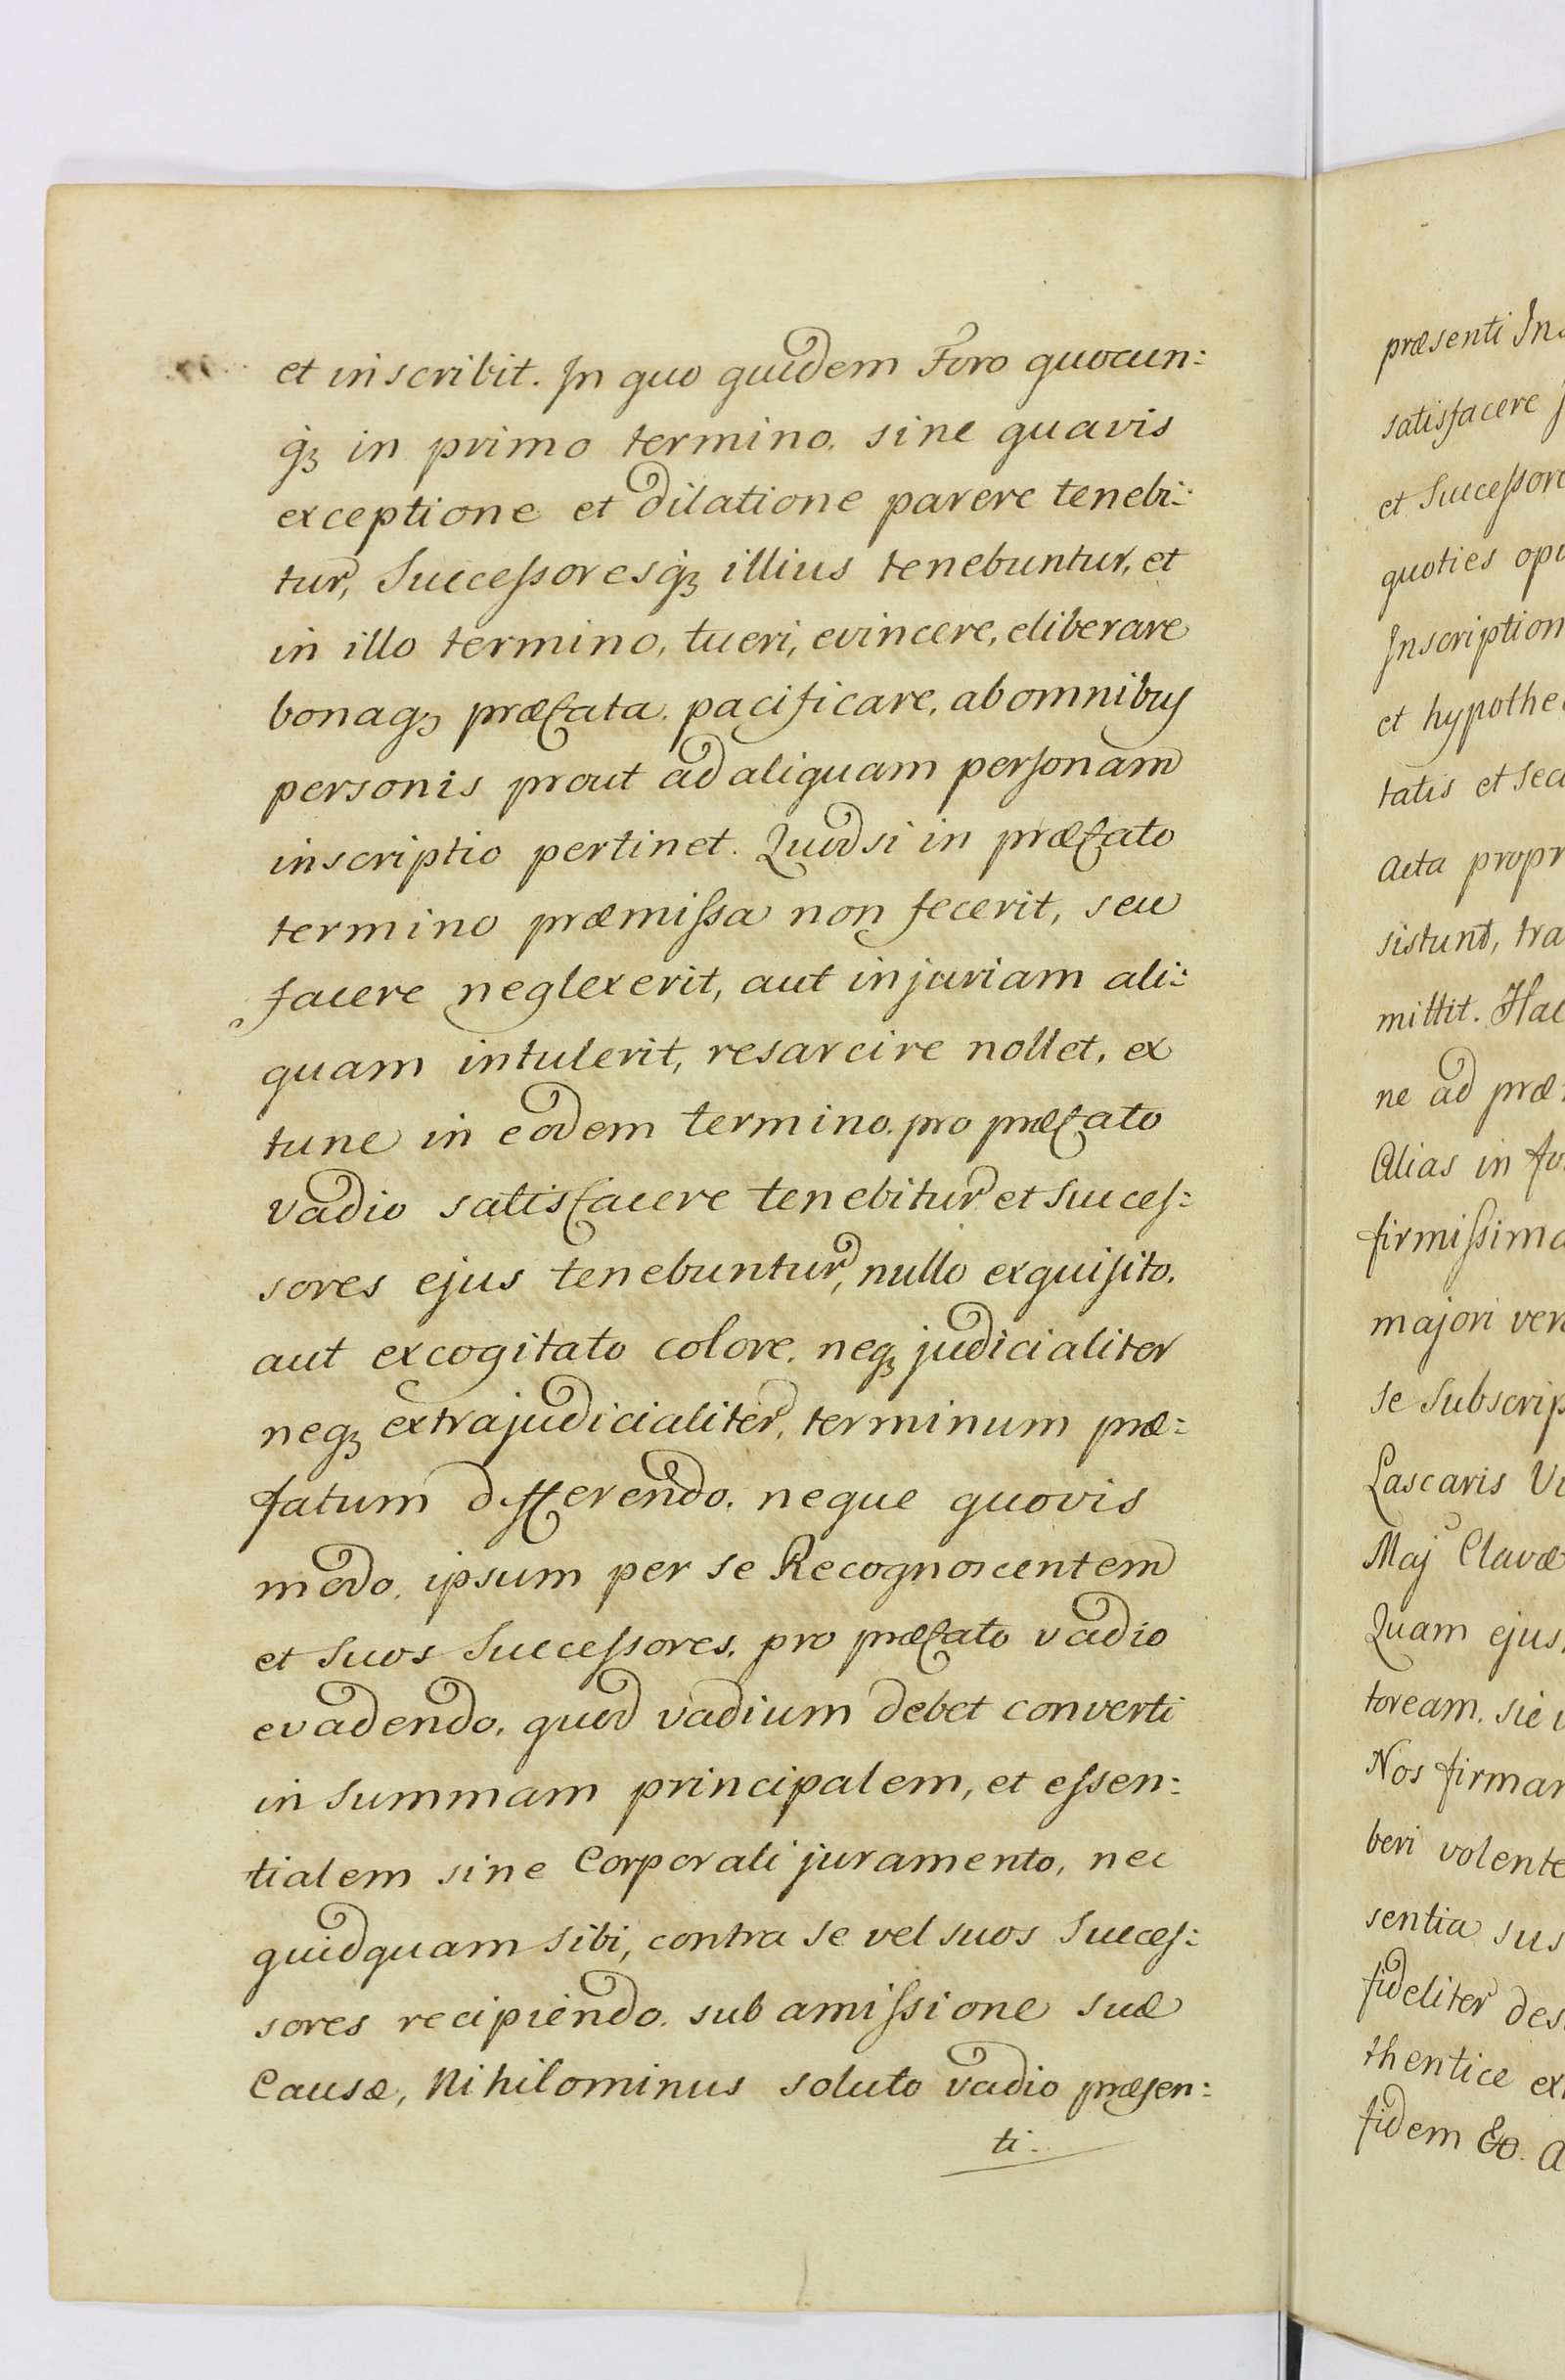 et inscribit. In quo quidem Foro quocun:
qꝫ in primo termino, sine quavis
exceptione et dilatione parere tenebi:
tur, Successoresqꝫ illius tenebuntur, et
in illo termino, tueri, evincere, eliberare
bonaqꝫ præfata, pacificare, ab omnibus
personis prout ad aliquam personam
inscriptio pertinet. Quod si in præfato
termino præmissa non fecerit, seu
facere neglexerit, aut injuriam ali:
quam intulerit, resarcire nollet, ex
tunc in eodem termino, pro præfato
vadio satisfacere tenebitur et Succes:
sores ejus tenebuntur, nullo exquisito,
aut excogitato colore, neqꝫ judicialiter
neqꝫ extrajudicialiter, terminum præ:
fatum differendo, neque quovis
modo, ipsum per se Recognoscentem
et Suos Successores, pro præfato vadio
evadendo, quod vadium debet converti
in Summam principalem, et essen:
tialem sine Corporali juramento, nec
quidquam sibi, contra se vel suos Succes:
sores recipiendo, sub amissione suæ
Causæ, Nihilominus soluto vadio præsen:
ti.
præsenti Ins
satisfacere
et Successore
quoties opu
Inscription
et hypothe
tatis et Sec
Acta propr
sistunt, tra
mittit. Hac
ne ad præ:
Alias in fo
firmissima
majori ver
se Subscrip
Lascaris Vi
Maj Clavæ
Quam ejus
toream, sic
Nos firmar
beri volente
sentia sus
fideliter des
thentice ex
fidem &c. A